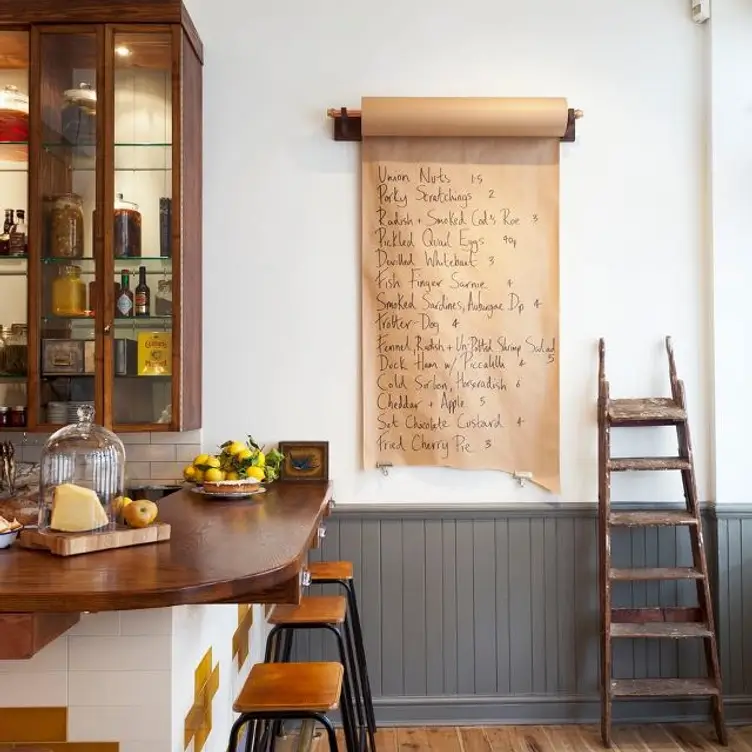 Union Nuts 1.5
Porky Scratchings 2
Radish + Smoked Cod's Roe 3
Pickled Quail Eggs 90p
Devilled Whitebait 3
Fish Finger Sarnie 4
Smoked Sardines, Aubergine Dip 4
Trotter-Dog 4
Fennel, Radish + Un-Potted Shrimp Salad 5
Duck Ham w/ Piccalilli 4
Cold Sirloin, Horseradish 6
Cheddar + Apple 5
Set Chocolate Custard 4
Fried Cherry Pie 3